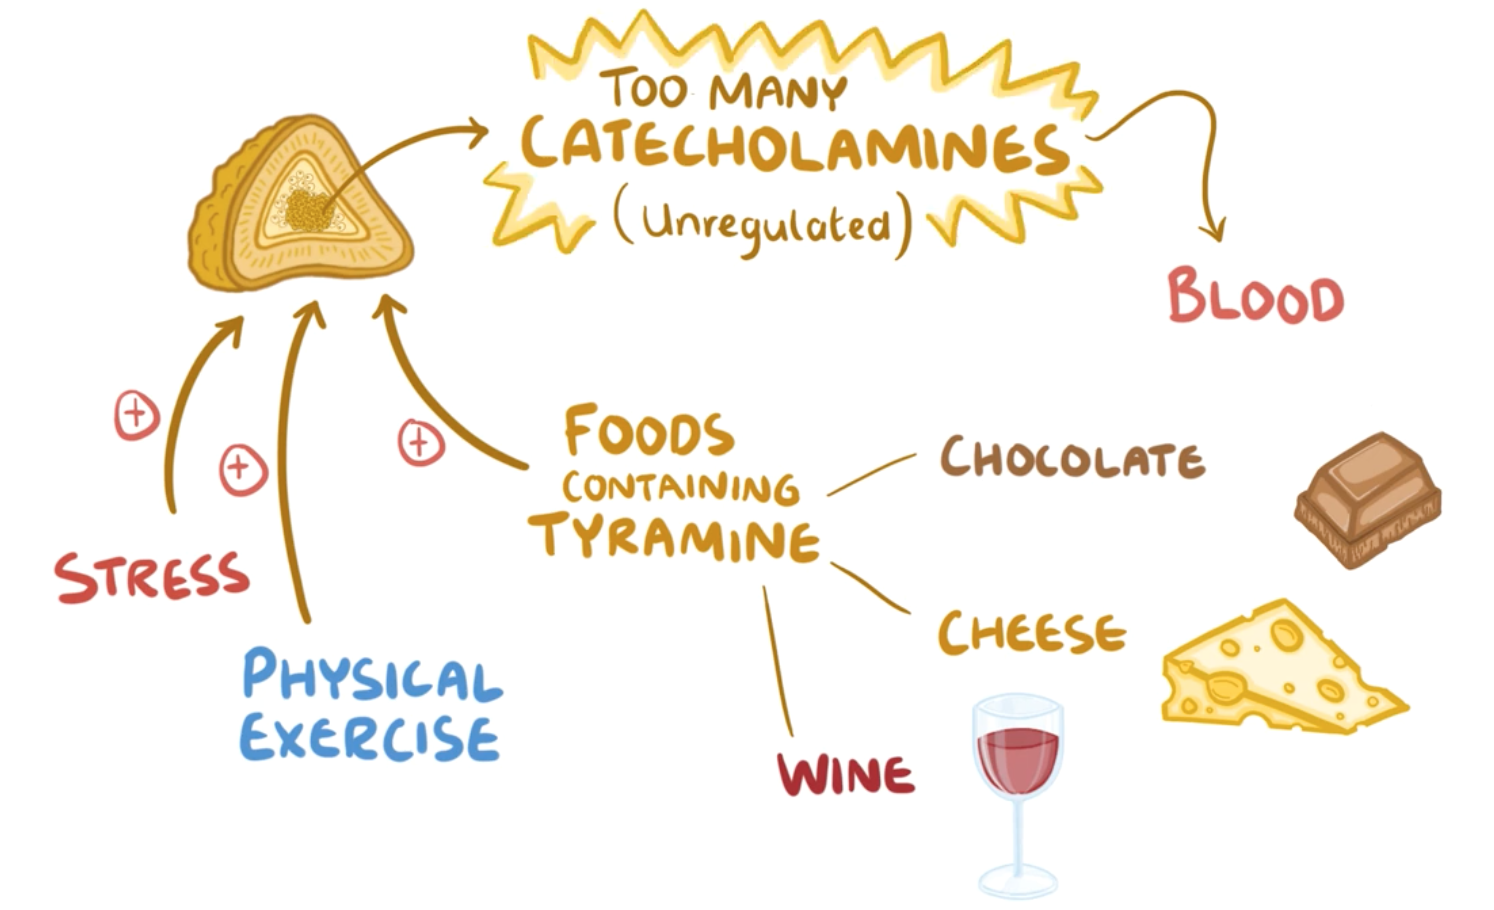 TOO MANY
CATECHOLAMINES
(Unregulated)
BLOOD
+
+
+
FOODS
CONTAINING
TYRAMINE
CHOCOLATE
STRESS
CHEESE
PHYSICAL
EXERCISE
WINE